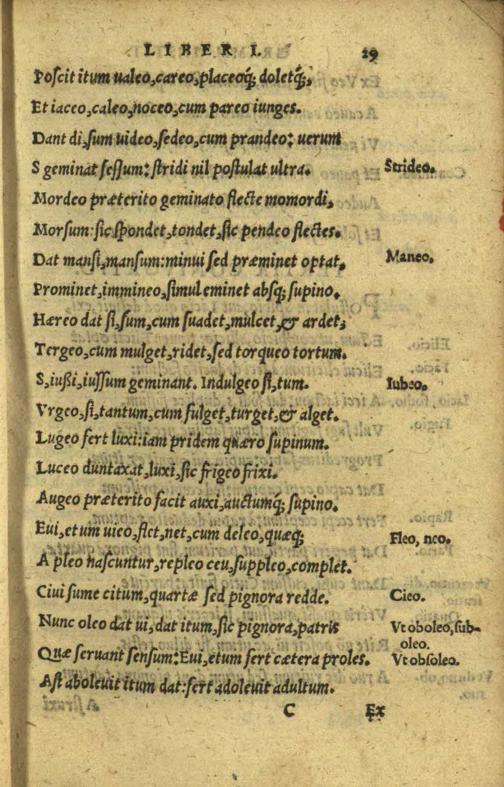 LIBER I. 29
Poscit itum ualeo, careo, placeoq́; doletq́;,
Et iaceo, caleo, noceo, cum pareo iunges.
Dant di, sum uideo, sedeo, cum prandeo: uerum
S geminat sessum: stridi nil postulat ultra. Strideo.
Mordeo præterito geminato flecte momordi,
Morsum: sic spondet, tondet, sic pendeo flectes.
Dat mansi, mansum: minui sed præminet optat, Maneo.
Prominet, immineo, simul eminet absq; supino.
Hæreo dat si, sum, cum suadet, mulcet, & ardet;
Tergeo, cum mulget, ridet, sed torqueo tortum.
S, iußi, iussum geminant. Indulgeo si, tum. Iubeo.
Vrgeo, si, tantum, cum fulget, turget, & alget.
Lugeo fert luxi: iam pridem quæro supinum.
Luceo duntaxat, luxi, sic frigeo frixi.
Augeo præterito facit auxi, auctumq́; supino.
Eui, etum uieo, flet, net, cum deleo, quæq; Fleo, neo.
A pleo nascuntur, repleo ceu, suppleo, complet.
Ciui sume citum, quartæ sed pignora redde. Cieo.
Nunc oleo dat ui, dat itum, sic pignora, patris Vt oboleo, sub-
oleo.
Quæ seruant sensum: Eui, etum fert cætera proles. Vt obsoleo.
Ast aboleuit itum dat: fert adoleuit adultum.
C Ex